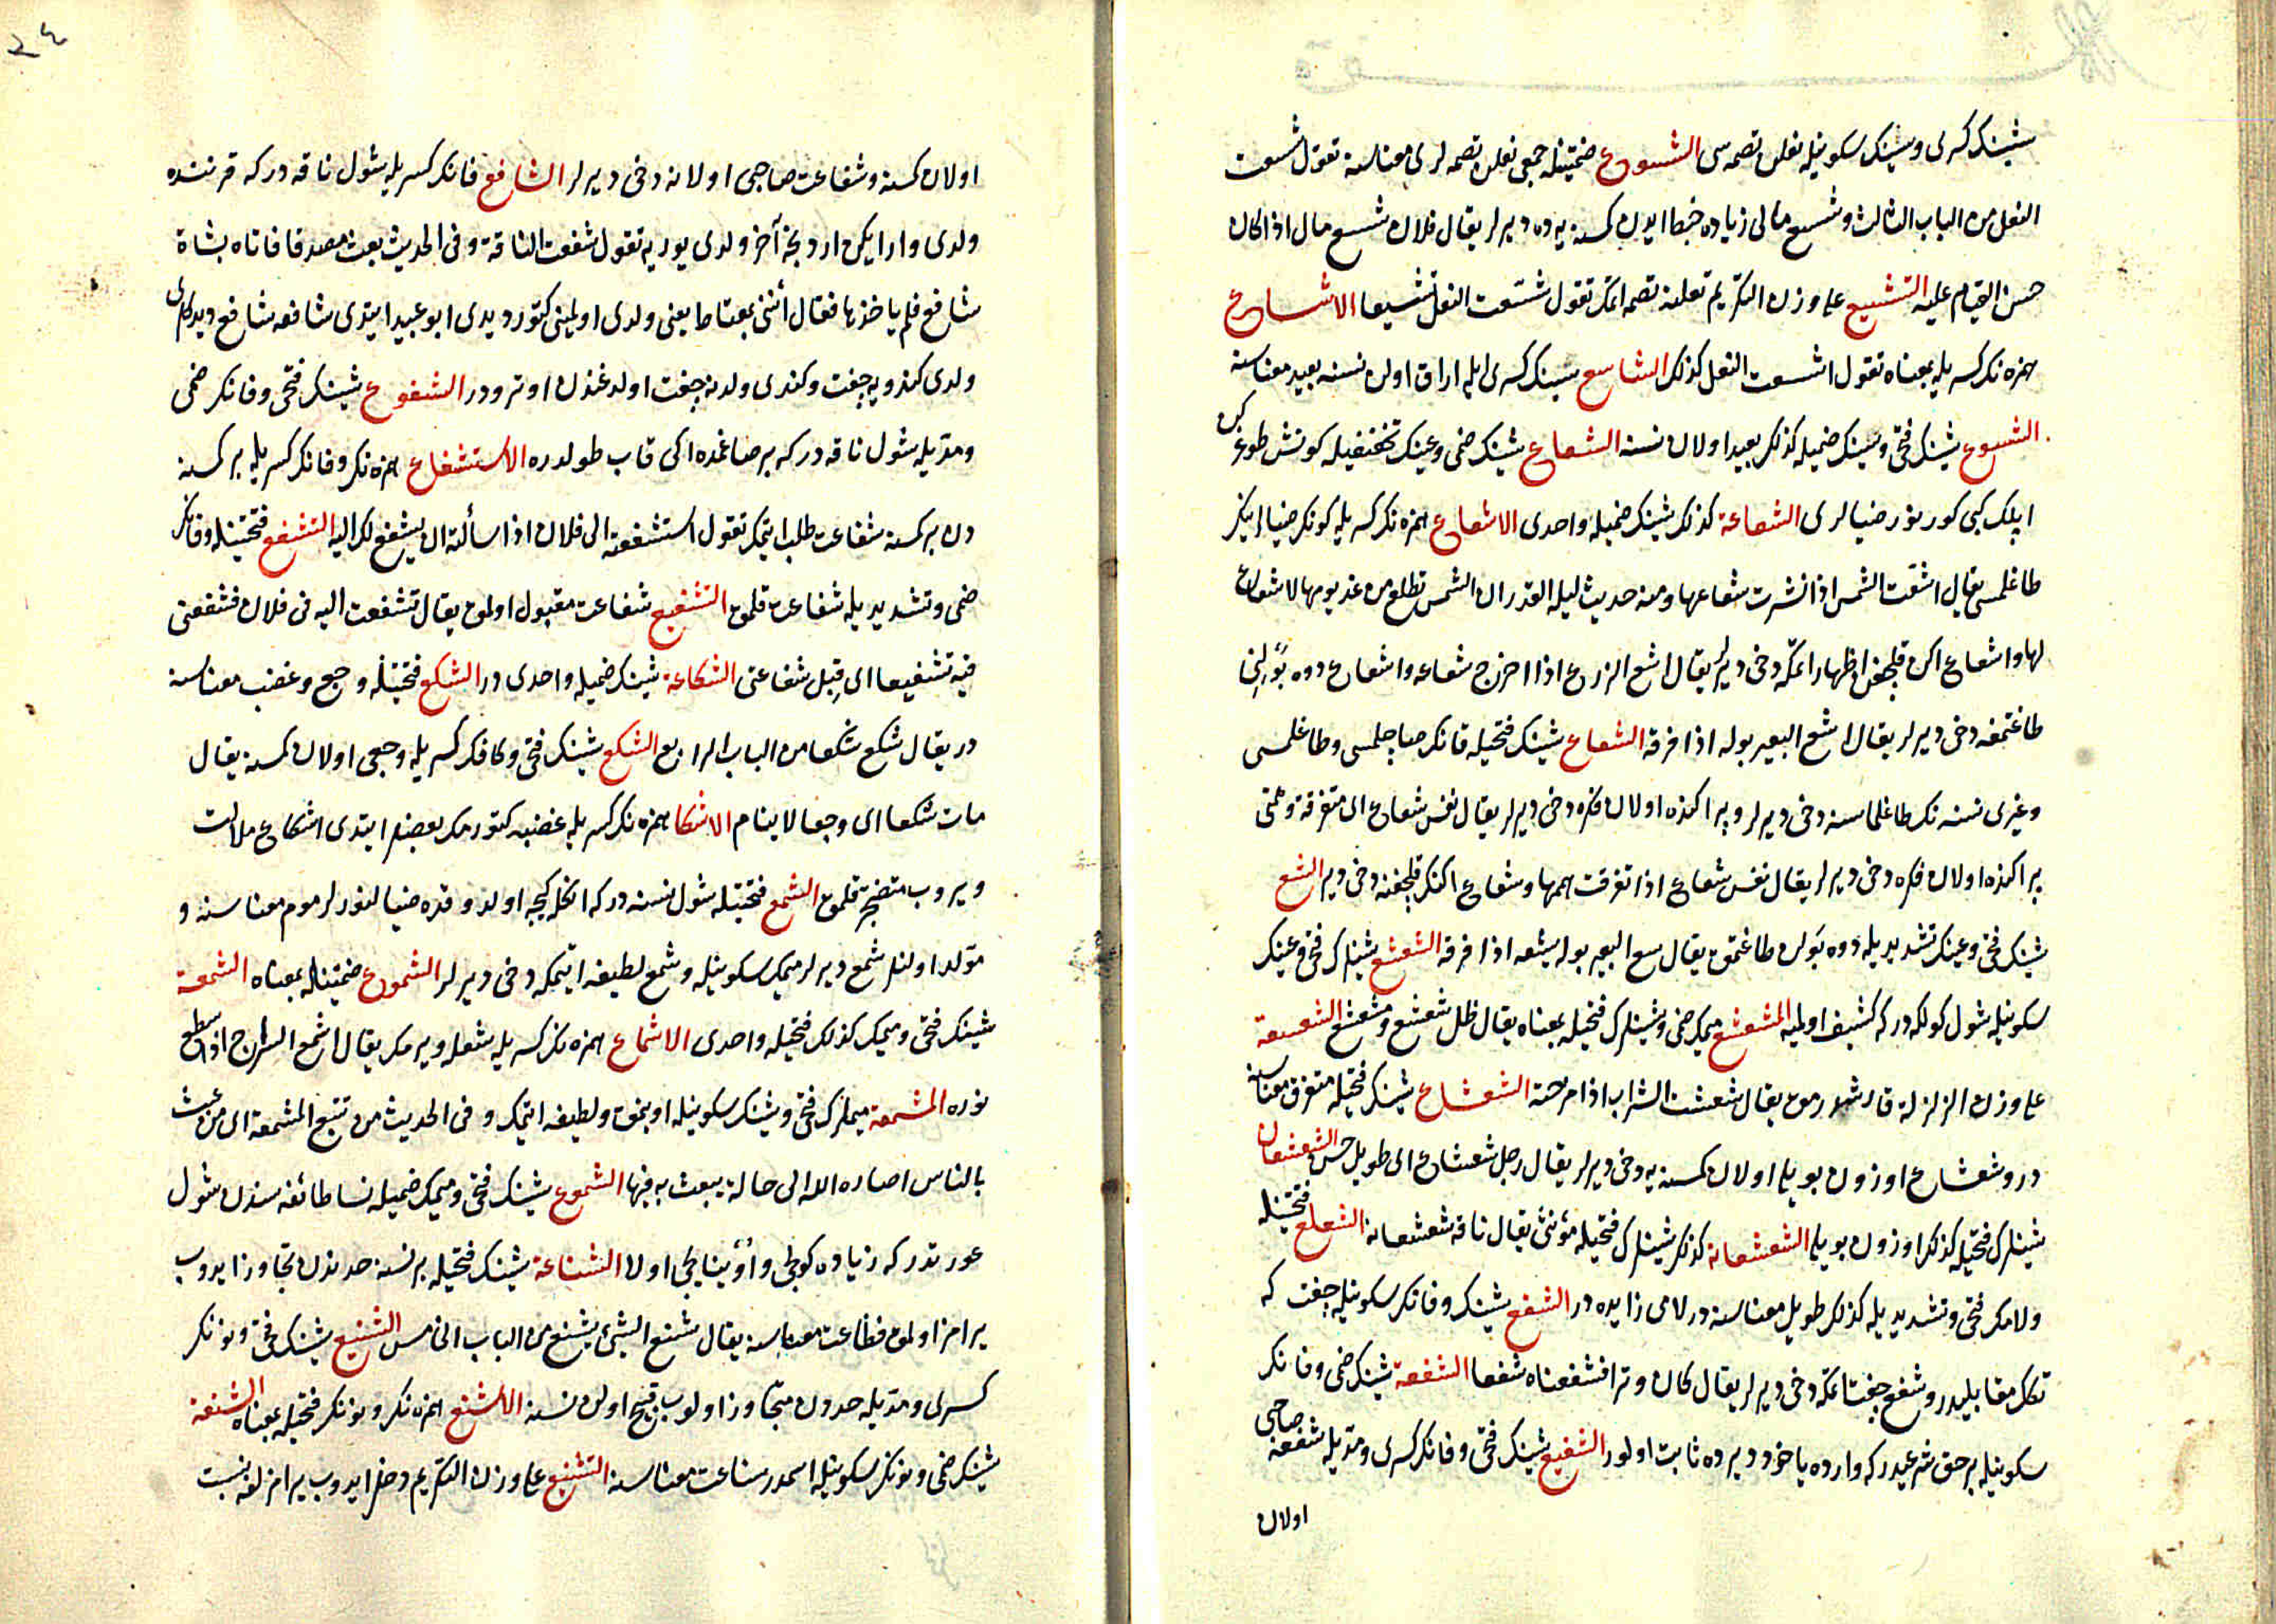 شینك كسرى و سینك سكونیله نعلن تصمه سى الشسوع ضمتینله جمعى نعلن تصمه لرى معناسنه تقول شسعت
النعل من الباب الثالث و شسع مالى زیاده ضبط ایدن كمسنه یه ده دیرلر یقال فلان شسع مال اذا كان
حسن القیام علیه التشسیع على وزن التكریم نعلنه تصمه اتمك تقول شسّعت النعل تشسیعا الاشساع
همزه نك كسریله بمعناه تقول اشسعت النعل كذلك الشاسع سینك كسرى ایله اراق اولن نسنه بعید معناسنه
الشسوع شینك فتحى و سینك ضمیله كذلك بعید اولان نسنه الشعاع شینك ضمى و عینك تخفیفیله كونش طوغركن
ایپلك كبى كورینور ضیالرى الشعاعة كذلك شینك ضمیله واحدى الاشعاع همزه نك كسریله كونك ضیالرینك
طاغلمسى یقال اشعّت الشمس اذا نشرت شعاعها و منه حدیث لیله القدر ان الشمس تطلع من غد یومها لا شعاع
لها و اشعاع اكن قلچغن اظهار اتمكه دخى دیرلر یقال اشع الزرع اذا اخرج شعاعه و اشعاع دوه بولنى
طاغتمغه دخى دیرلر یقال اشع البعیر بوله اذا فرقه الشعاع شینك فتحیله قانك صاچلمسى و طاغلمسى
و غیرى نسنه نك طاغلماسنه دخى دیرلر و پراكنده اولان فكره دخى دیرلر یقال نفس شعاع اى متفرقة و همتى
پراكنده اولان فكره دخى دیرلر یقال نفس شعاع اذا تفرقت هممها و شعاع اكنك قلچغنه دخى دیر الشع
شینك فتحى و عینك تشدیدیله دوه بولن طاغتمق یقال شع البعیر بوله یشعه اذا فرقه الشعشع شینلرك فتحى و عینك
سكونیله شول كولكه دركه كشیف اولمیه المشعشع میمك ضمى و شینلرك فتحیله بمعناه یقال ظل شعشع و مشعشع الشعشعة
على وزن الزلزلة قارشدرمق یقال شعشعت الشراب اذا مزجته الشعشاع شینك فتحیله متفرق معناسنه
در و شعشاع اوزون بویلى اولان كمسنه یه دخى دیرلر یقال رجل شعشاع اى طویل حسن الشعشعان
شینلرك فتحیله كذلك اوزون بویلى الشعشعانة كذلك شینلرك فتحیله مؤنثى یقال ناقة شعشعانة الشعلع فتحتینله
و لامك فتحى و تشدیدیله كذلك طویل معناسنه در لامى زایده در الشفع شینك و فانك سكونیله جفت كه
تكك مقابلیدر و شفع جفت اتمكه دخى دیرلر یقال كان وترا فشفعناه شفعا الشفعة شینك ضمى و فانك
سكونیله بر حق شرعیدر كه وارده یاخود دیرده ثابت اولور الشفیع شینك فتحى و فانك كسرى و مدیله شفعه صاحبى
اولان
٢٤
اولان كمسنه و شفاعت صاحبى اولانه دخى دیرلر الشافع فانك كسریله شول ناقه در كه قرننده
ولدى وار ایكن اردنجه آخر ولدى یوریه تقول شفعت الناقة و فى الحدیث بعث مصدقا فاتاه بشاة
شافع فلم یاخذها فقال أتنى بمعتاط یعنى ولدى اولمینى كتور دیدى ابو عبید ایتدى شافعه شافع دیدكلرى
ولدى كندویه جفت و كندى ولدنه جفت اولدغندن اوترودر الشفوع شینك فتحى و فانك ضمى
و مدیله شول ناقه در كه بر صاغمده ایكى قاب طولدره الاستشفاع همزه نك و فانك كسریله بر كمسنه
دن بر كمسنه شفاعت طلب ایتمك تقول استشفعته الى فلان اذا سألته ان یشفع لك الیه التشفع فتحتینله و فانك
ضمى و تشدیدیله شفاعت قلمق التشفیع شفاعت مقبول اولمق یقال تشفعت الیه فى فلان فشفعنى
فیه تشفیعا اى قبل شفاعتى الشكاعة شینك ضمیله واحدى در الشكع فتحتینله وجع و غضب معناسنه
در یقال شكع شكعا من الباب الرابع الشكع شینك فتحى و كافك كسریله وجعى اولان كمسنه یقال
مات شكعا اى وجعا لاینام الاشكا همزه نك كسریله غضبه كتورمك بعضلر ایتدى اشكاع ملالت
ویروب متضجر قلمق الشمع فتحتینله شول نسنه در كه انكله كیجه اولد وقده ضیالنورلر موم معناسنه و
مولد اولنلر شمع دیرلر میمك سكونیله و شمع لطیفه ایتمكه دخى دیرلر الشموع ضمتینله بمعناه الشمعة
شینك فتحى و میمك كذلك فتحیله واحدى الاشماع همزه نك كسریله شعله ویرمك یقال اشمع السراج اذا سطع
نوره المشمعة میملرك فتحى و شینك سكونیله اوینمق و لطیفه ایتمك و فى الحدیث من تتبع المشمعة اى من عبث
بالناس اصاره الله الى حالة یعبث به فیها الشموع شینك فتحى و میمك ضمیله نسا طائفه سندن شول
عورتدر كه زیاده كولجى و اوینایجى اولا الشناعة شینك فتحیله بر نسنه حدندن تجاوز ایدوب
یرامز اولمق فظاعت معناسنه یقال شنع الشئ یشنع من الباب الخامس الشنیع شینك فتحى و نونك
كسرى و مدیله حدون متجاوز اولوب قبیح اولن نسنه الاشنع همزه نك و نونك فتحیله بمعناه الشنعة
شینك ضمى و نونك سكونیله اسمدر شناعت معناسنه التشنیع على وزن التكریم دخل ایدوب یرامزلغه نسبت